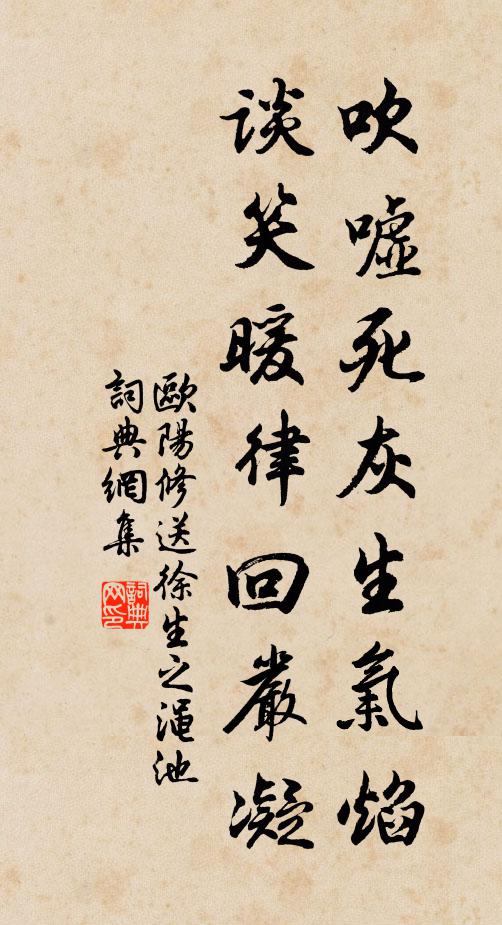 吹噓死灰生氣焰
談笑暖律回嚴凝
歐陽修送徐生之澠池
詞典網集
詞典网印